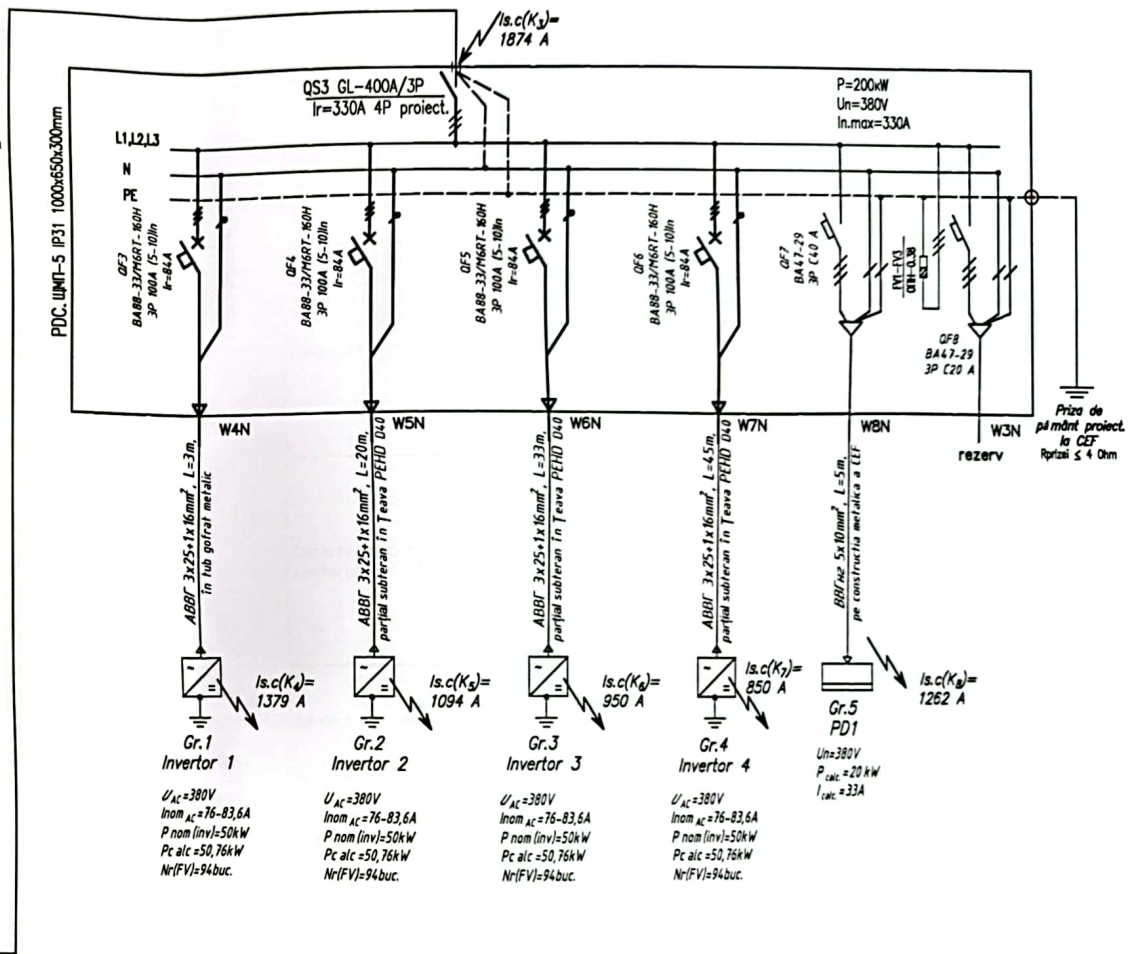 Is.c(K₃)=
1874 A
QS3 GL-400A/3P
Ir=330A 4P proiect.
P=200kW
Un=380V
In.max=330A
PDC. ЩМП-5 IP31 1000x650x300mm
L1,L2,L3
N
PE
QF3
BA88-33/M6RT-160H
3P 100A (5-10)In
Ir=84A
QF4
BA88-33/M6RT-160H
3P 100A (5-10)In
Ir=84A
QF5
BA88-33/M6RT-160H
3P 100A (5-10)In
Ir=84A
QF6
BA88-33/M6RT-160H
3P 100A (5-10)In
Ir=84A
QF7
BA47-29
3P C40 A
FV1-FV3
ОПН-0.38
QF8
BA47-29
3P C20 A
W4N
W5N
W6N
W7N
W8N
W3N
rezerv
Priza de
pământ proiect.
la CEF
Rprizei ≤ 4 Ohm
АВВГ 3x25+1x16mm², L=3m,
în tub gofrat metalic
АВВГ 3x25+1x16mm², L=20m,
parțial subteran în Țeava PEHD D40
АВВГ 3x25+1x16mm², L=33m,
parțial subteran în Țeava PEHD D40
АВВГ 3x25+1x16mm², L=45m,
parțial subteran în Țeava PEHD D40
ВВГнг 5x10mm², L=5m,
pe constructia metalica a CEF
Is.c(K₄)=
1379 A
Is.c(K₅)=
1094 A
Is.c(K₆)=
950 A
Is.c(K₇)=
850 A
Is.c(K₈)=
1262 A
Gr.1
Invertor 1
Gr.2
Invertor 2
Gr.3
Invertor 3
Gr.4
Invertor 4
Gr.5
PD1
U AC=380V
Inom AC=76-83,6A
P nom (inv)=50kW
Pc alc =50,76kW
Nr(FV)=94buc.
U AC=380V
Inom AC=76-83,6A
P nom (inv)=50kW
Pc alc =50,76kW
Nr(FV)=94buc.
U AC=380V
Inom AC=76-83,6A
P nom (inv)=50kW
Pc alc =50,76kW
Nr(FV)=94buc.
U AC=380V
Inom AC=76-83,6A
P nom (inv)=50kW
Pc alc =50,76kW
Nr(FV)=94buc.
Un=380V
P calc. =20 kW
I calc. =33A